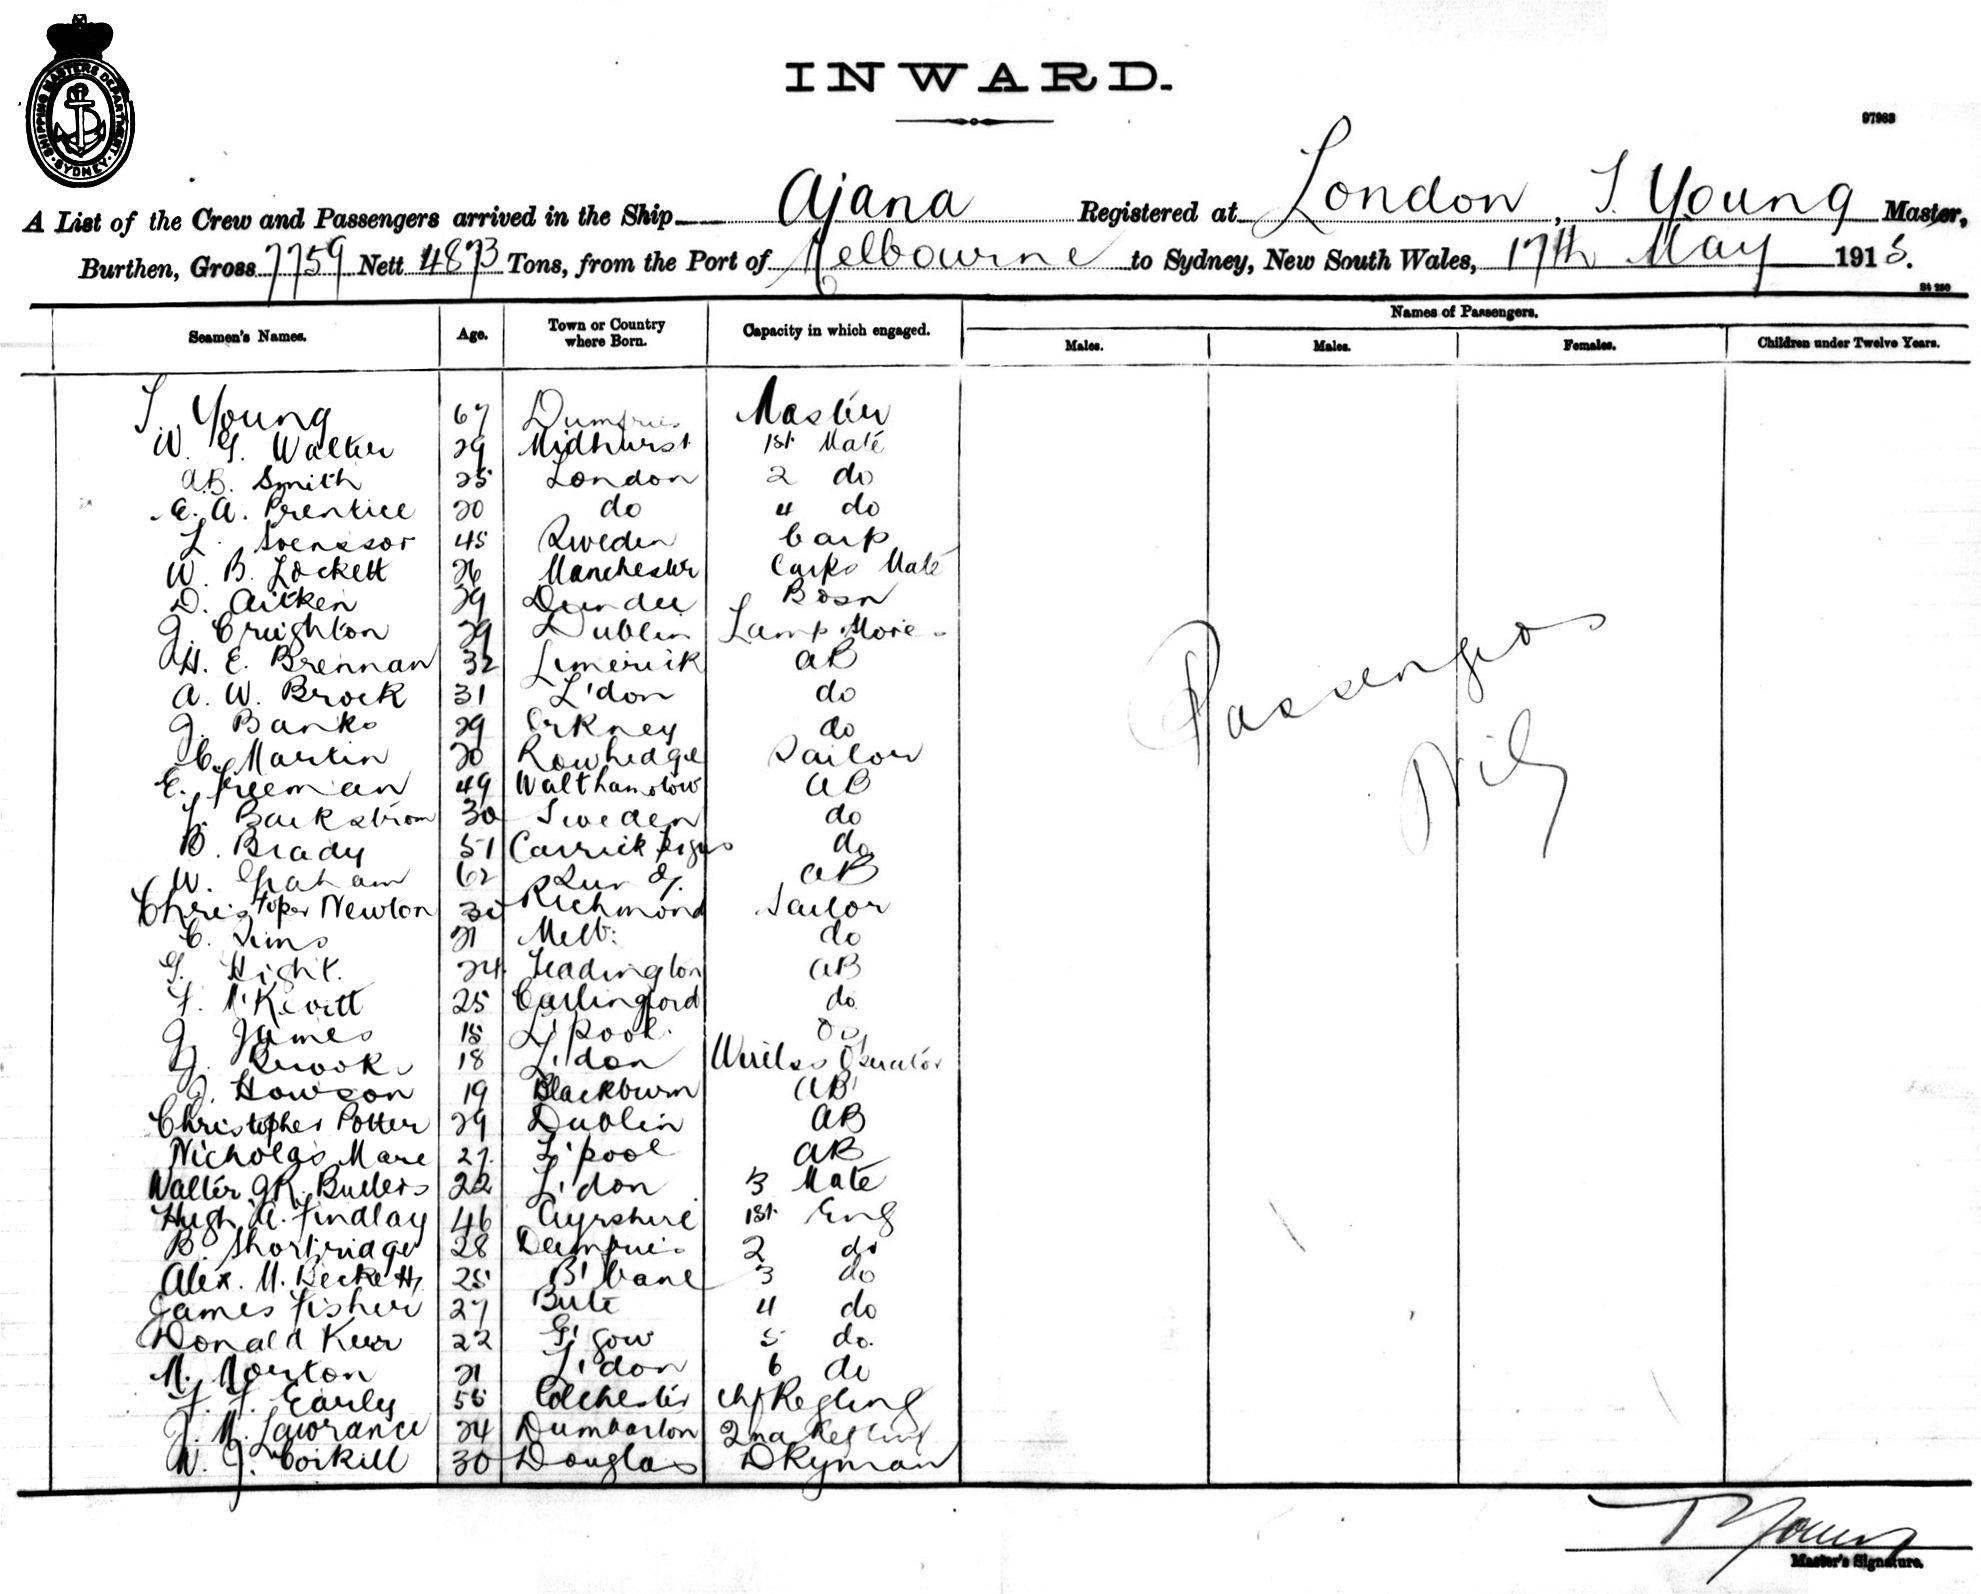 SHIPPING MASTERS DEPARTMENT. SYDNEY
INWARD.
97963
A List of the Crew and Passengers arrived in the Ship Ajana Registered at London, T. Young Master,
Burthen, Gross 7759 Nett 4873 Tons, from the Port of Melbourne to Sydney, New South Wales, 17th May 1915.
St 250
Seamen's Names. Age. Town or Country where Born. Capacity in which engaged. Names of Passengers.
Males. Males. Females. Children under Twelve Years.
T. Young 67 Dumfries Master
W. G. Walker 29 Midhurst 1st Mate
A.B. Smith 25 London 2 do
E. A. Prentice 20 do 4 do
L. Svensson 45 Sweden Carp
W. B. Lockett 26 Manchester Carps Mate
D. Aitken 29 Dundee Bosn
J. Creighton 29 Dublin Lamp
H. E. Brennan 32 Limerick AB
A. W. Brock 31 L'don do
J. Banks 29 Orkney do
C. Martin 20 Rowhedge Sailor
E. Freeman 49 Walthamstow AB
Backstrom 30 Sweden do
B. Brady 51 Carrickfergus do
W. Graham 62 AB
Christoper Newton 30 Richmond Sailor
C. Sims 21 Melb: do
G. Hight. 24 AB
F. McKevitt 25 Carlingford do
J. James 18 L'pool. OS
Brook 18 L'don Wireless Operator
J. Howson 19 Blackburn AB
Christopher Potter 29 Dublin AB
Nicholas Mare 27 L'pool AB
Walter J.R. Butlers 22 L'don 3 Mate
Hugh A. Findlay 46 Ayrshire 1st Eng
B. Shortridge 28 Dumfries 2 do
Alex. M. Beckett 25 B'bane 3 do
James Fisher 27 Bute 4 do
Donald Kerr 22 G'gow 5 do.
M. Morton 21 L'don 6 do
F. F. Early 55 Colchester Chf Refling
J. M. Lawrance 24 Dumbarton 2nd Refling
W. J. Corkill 30 Douglas DKyman
Passengers
Nil
T Young
Master's Signature.